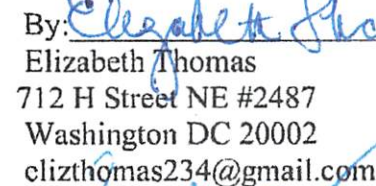 By: Elizabeth
Elizabeth Thomas
712 H Street NE #2487
Washington DC 20002
clizthomas234@gmail.com